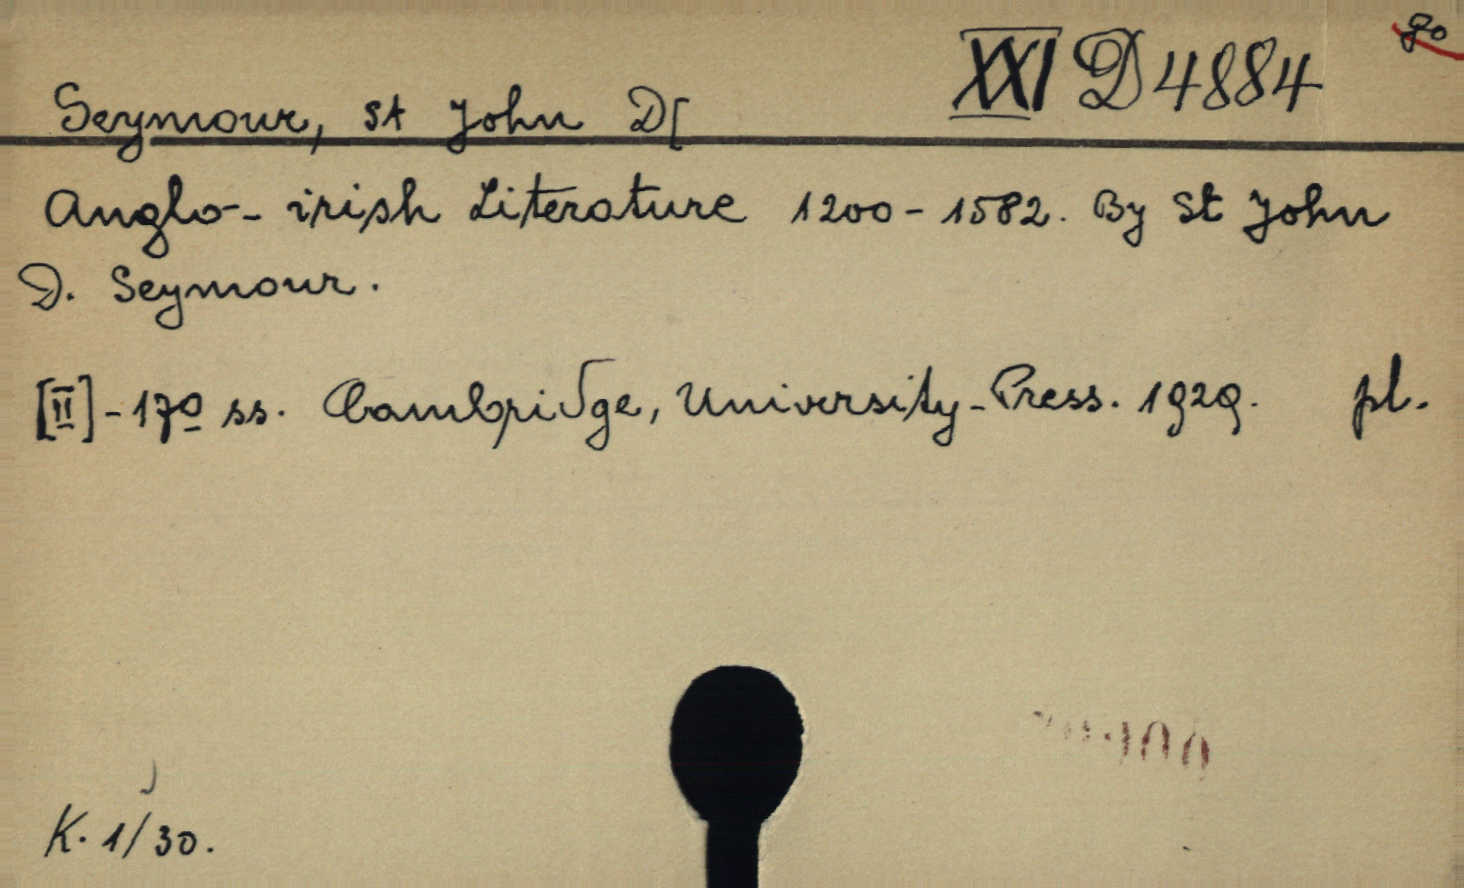 8º
XXI D 4884
Seymour, St John D[
Anglo-irish Literature 1200-1582. By St John
D. Seymour.
[II]-170 ss. Cambridge, University-Press. 1929. pl.
K. 1/30.